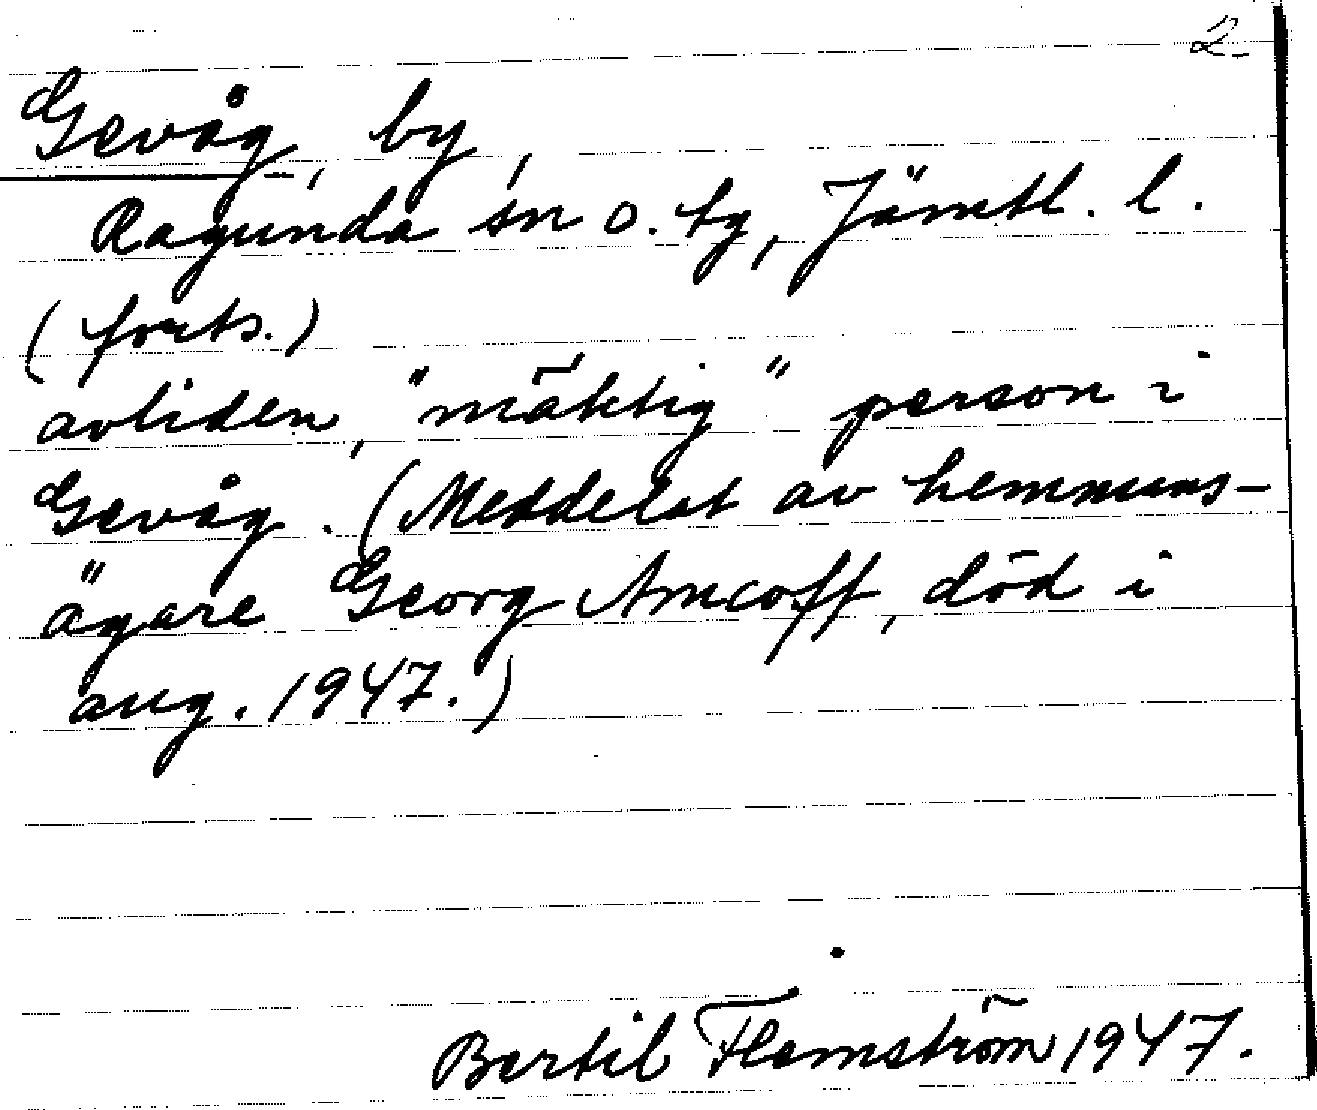 2
Gevåg, by,
Ragunda sn o. tg, Jämtl. l.
(forts.)
avliden, "mäktig" person i
Gevåg. (Meddelat av hemmans-
ägare Georg Amcoff, död i
aug. 1947.)
Bertil Flemström 1947.